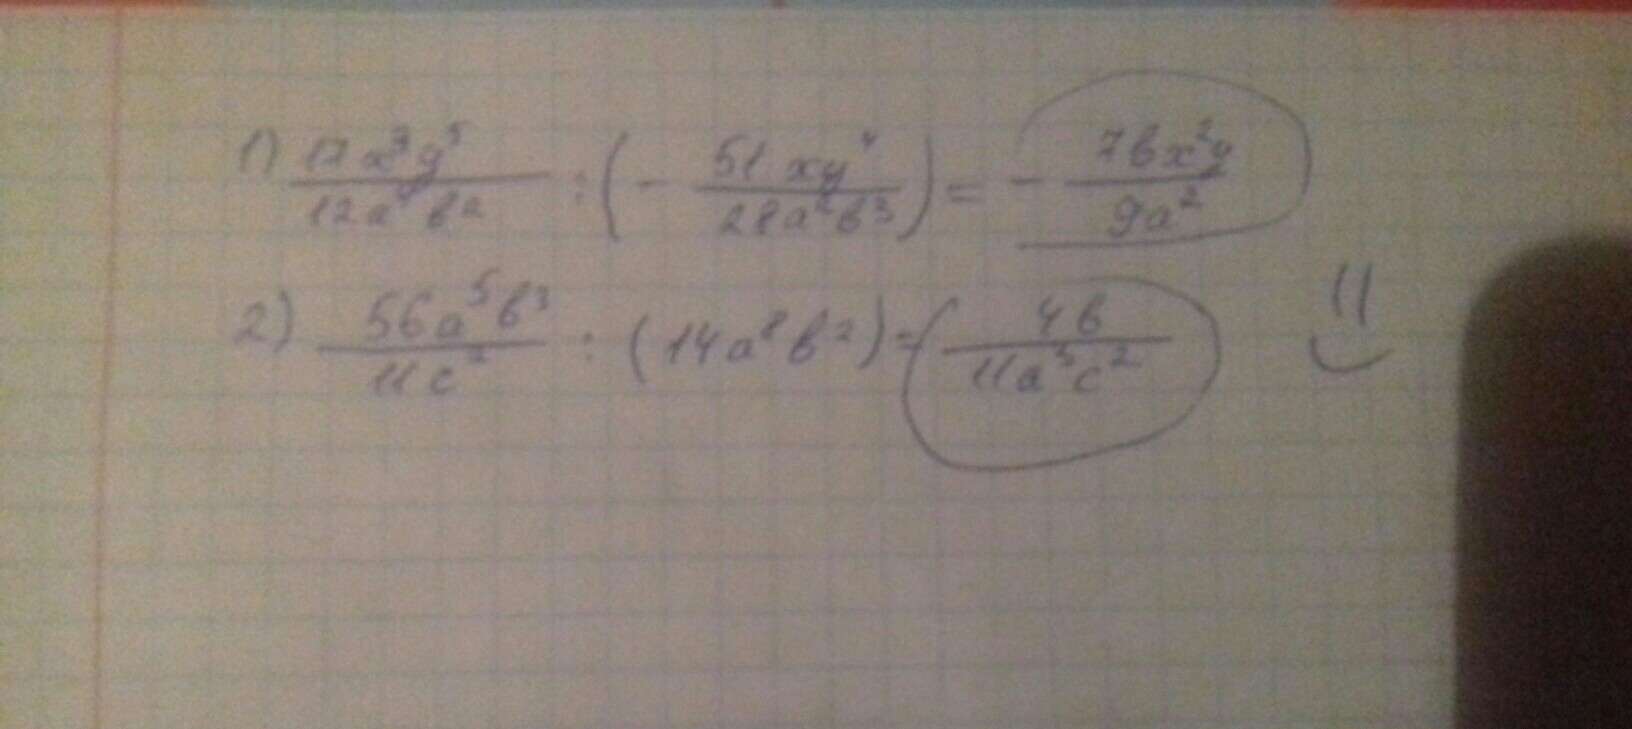 1) 17x³y⁵/12a⁴b² : (− 51xy⁴/28a²b³) = − 7bx²y/9a²
2) 56a⁵b³/11c² : (14a⁸b²) = 4b/11a³c²